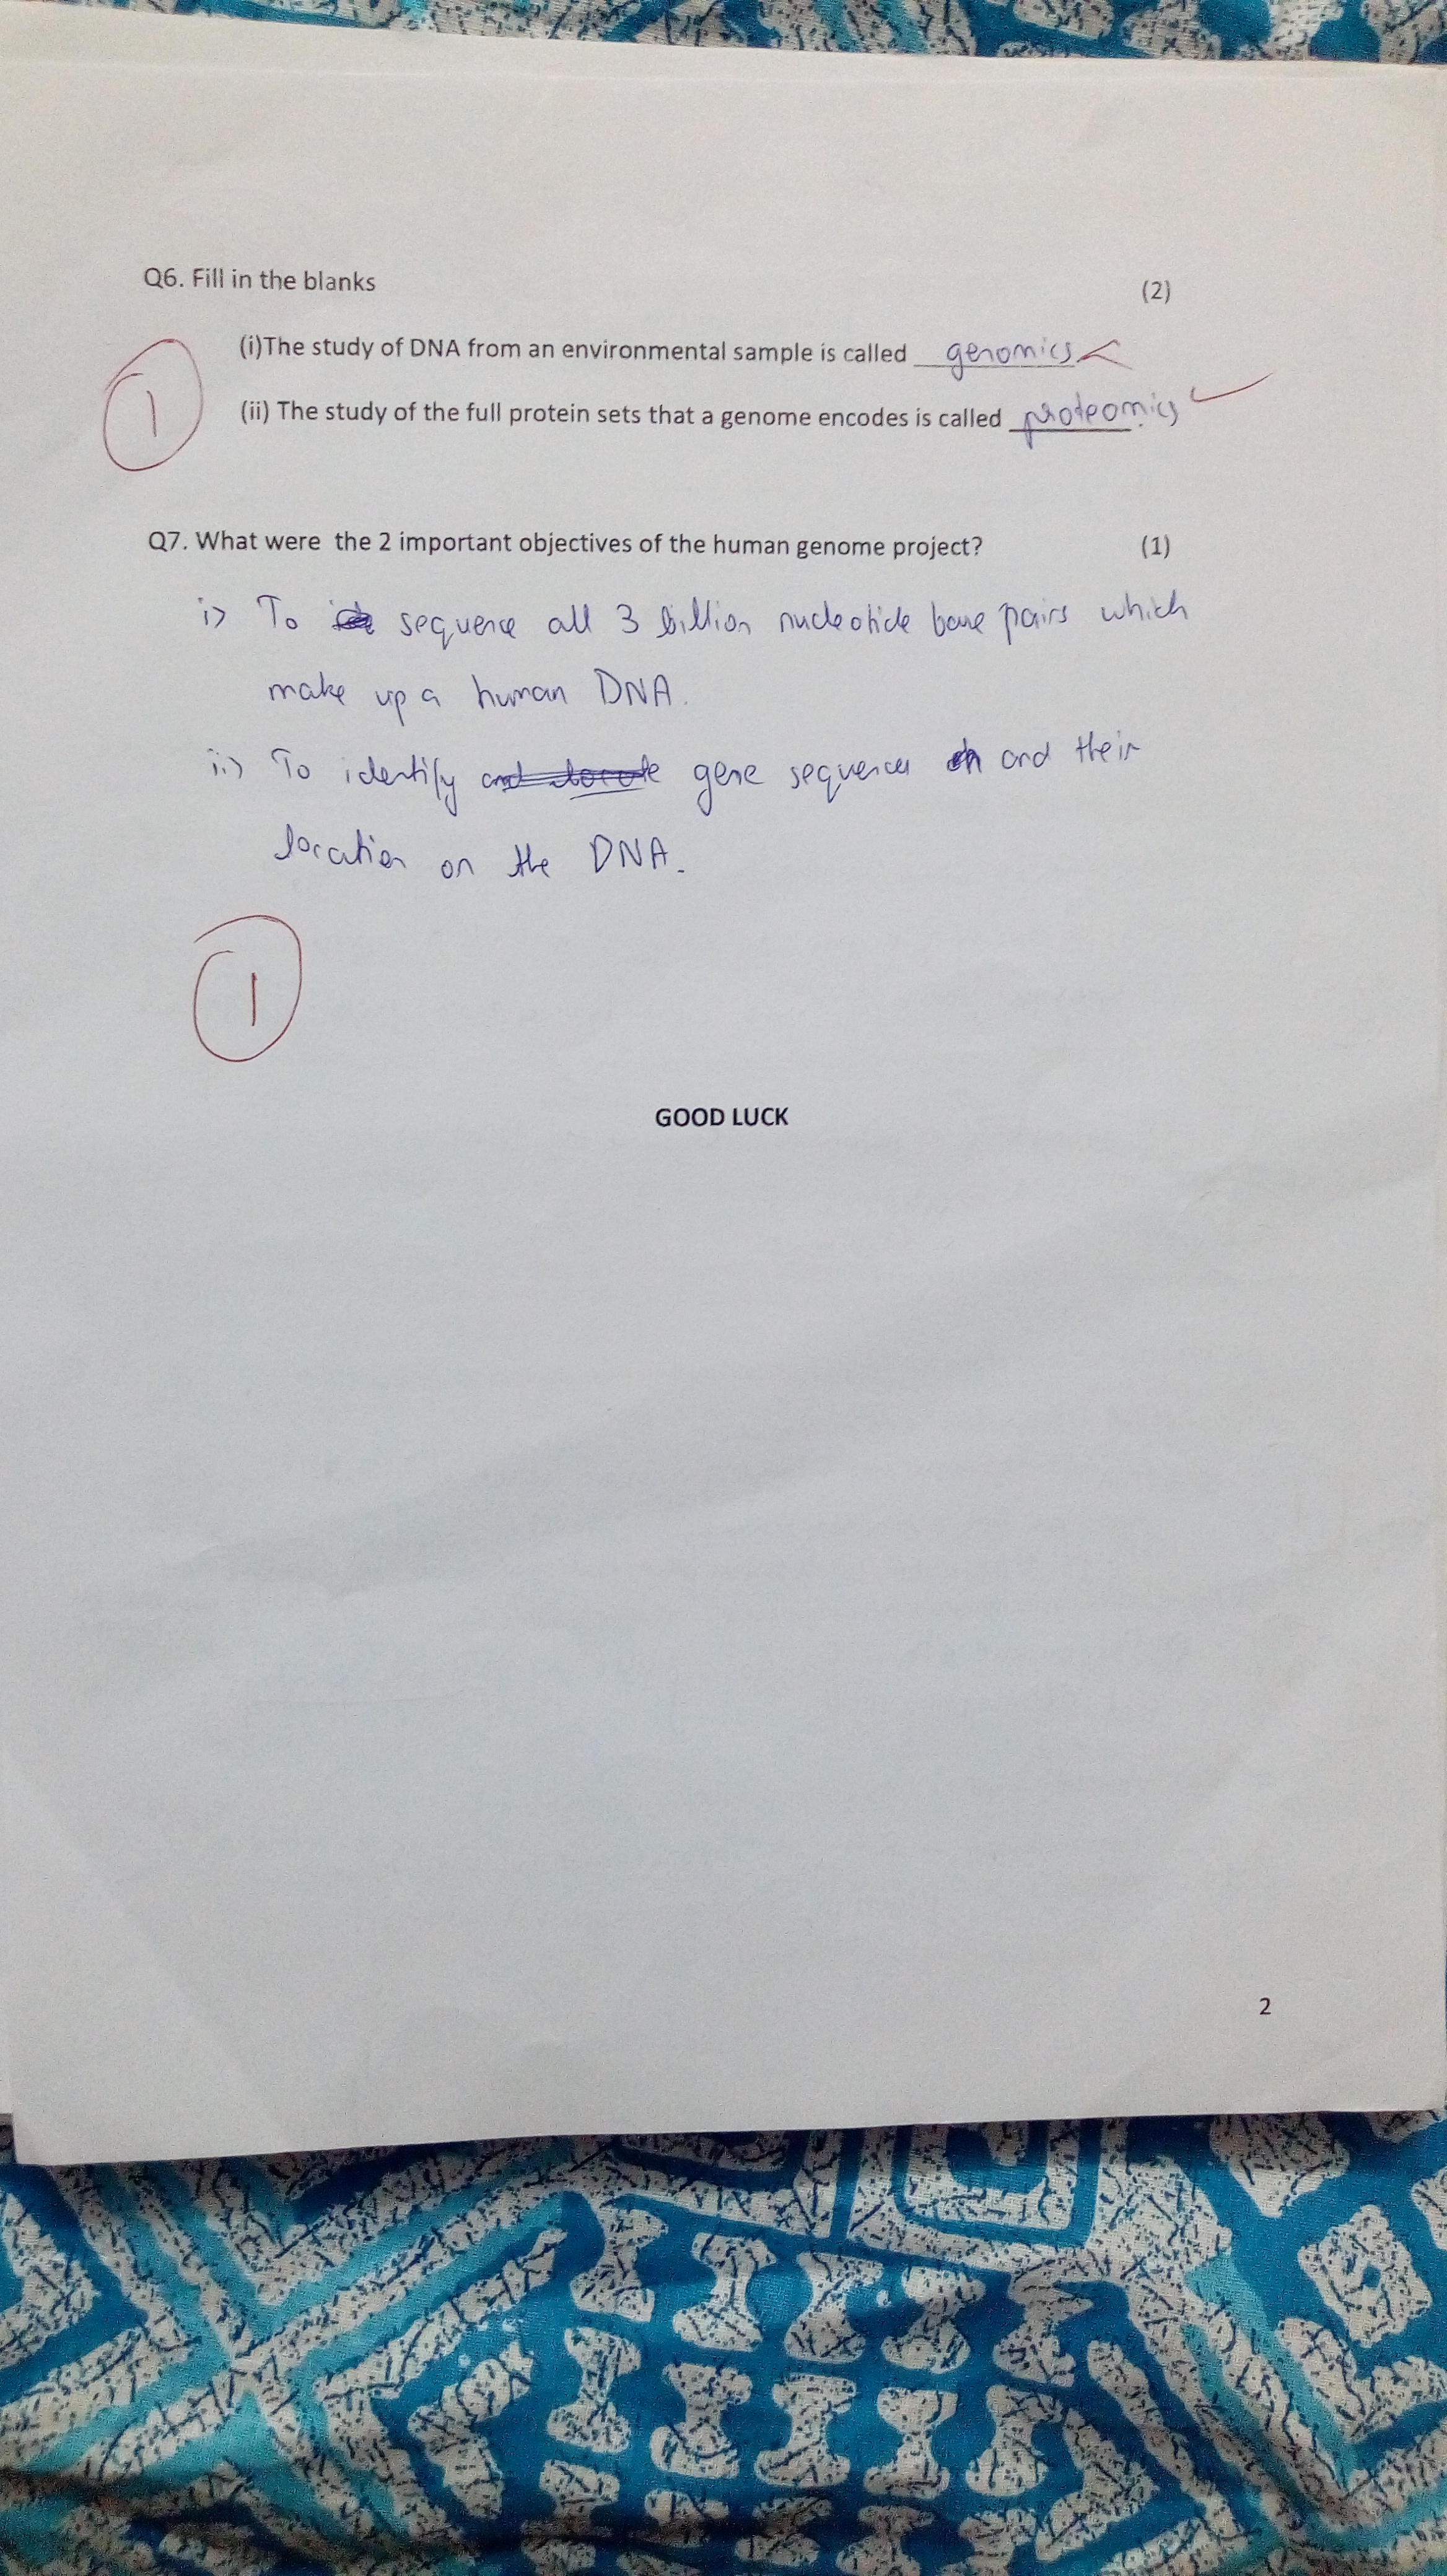 Q6. Fill in the blanks (2)
(i)The study of DNA from an environmental sample is called genomics
1 (ii) The study of the full protein sets that a genome encodes is called proteomics.
Q7. What were the 2 important objectives of the human genome project? (1)
i) To sequence all 3 billion nucleotide base pairs which
make up a human DNA.
ii) To identify and locate gene sequences and their
location on the DNA.
1
GOOD LUCK
2